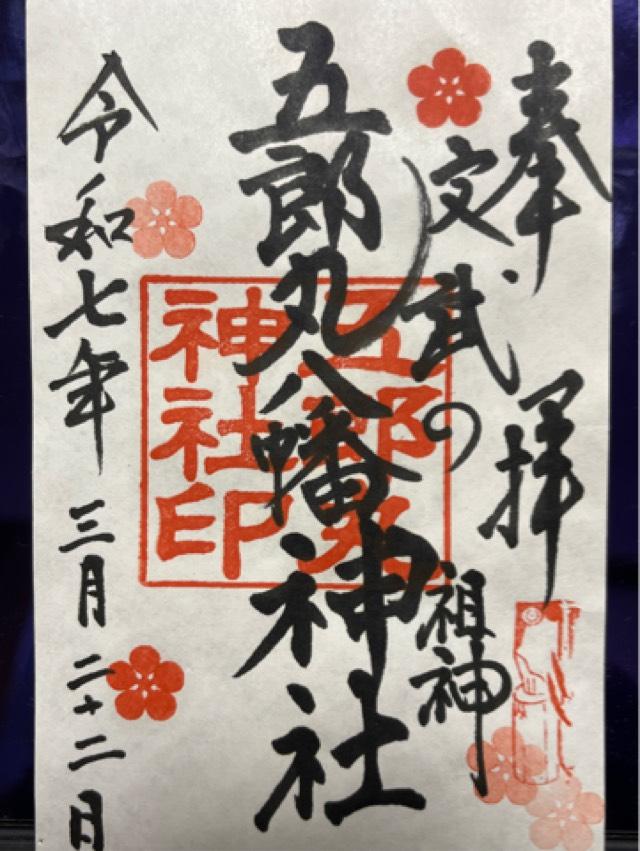 奉拝
文武の祖神
五郎丸八幡神社
五郎丸
神社印
令和七年三月二十二日